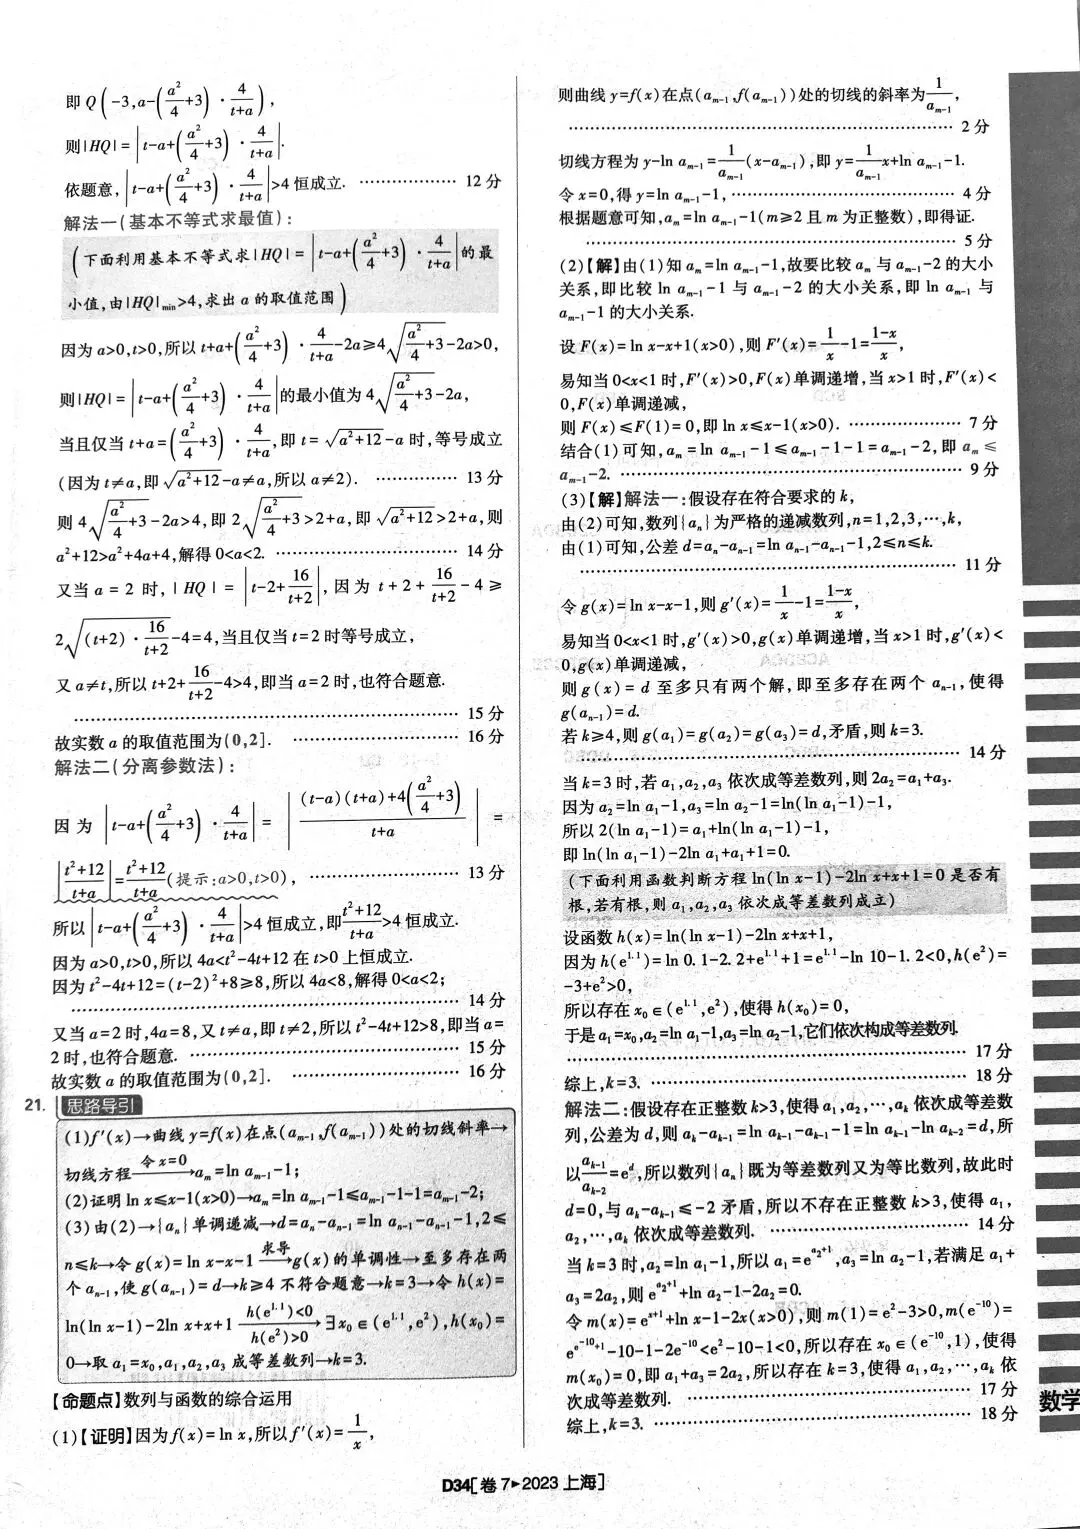 即 Q(-3,a-(a²/4+3)·4/(t+a)),
则|HQ|=|t-a+(a²/4+3)·4/(t+a)|.
依题意,|t-a+(a²/4+3)·4/(t+a)|>4 恒成立. ……………… 12 分
解法一(基本不等式求最值):
(下面利用基本不等式求|HQ|=|t-a+(a²/4+3)·4/(t+a)|的最
小值,由|HQ|min>4,求出 a 的取值范围)
因为 a>0,t>0,所以 t+a+(a²/4+3)·4/(t+a)-2a≥4√(a²/4+3)-2a>0,
则|HQ|=|t-a+(a²/4+3)·4/(t+a)|的最小值为 4√(a²/4+3)-2a,
当且仅当 t+a=(a²/4+3)·4/(t+a),即 t=√(a²+12)-a 时,等号成立
(因为 t≠a,即√(a²+12)-a≠a,所以 a≠2). ……………… 13 分
则 4√(a²/4+3)-2a>4,即 2√(a²/4+3)>2+a,即√(a²+12)>2+a,则
a²+12>a²+4a+4,解得 0<a<2. ……………… 14 分
又当 a=2 时,|HQ|=|t-2+16/(t+2)|,因为 t+2+16/(t+2)-4≥
2√((t+2)·16/(t+2))-4=4,当且仅当 t=2 时等号成立,
又 a≠t,所以 t+2+16/(t+2)-4>4,即当 a=2 时,也符合题意.
……………… 15 分
故实数 a 的取值范围为(0,2]. ……………… 16 分
解法二(分离参数法):
因为|t-a+(a²/4+3)·4/(t+a)|=|((t-a)(t+a)+4(a²/4+3))/(t+a)|=
|(t²+12)/(t+a)|=(t²+12)/(t+a)(提示:a>0,t>0), ……………… 13 分
所以|t-a+(a²/4+3)·4/(t+a)|>4 恒成立,即(t²+12)/(t+a)>4 恒成立.
因为 a>0,t>0,所以 4a<t²-4t+12 在 t>0 上恒成立.
因为 t²-4t+12=(t-2)²+8≥8,所以 4a<8,解得 0<a<2;
……………… 14 分
又当 a=2 时,4a=8,又 t≠a,即 t≠2,所以 t²-4t+12>8,即当 a=
2 时,也符合题意. ……………… 15 分
故实数 a 的取值范围为(0,2]. ……………… 16 分
21. 思路导引
(1)f′(x)→曲线 y=f(x)在点(aₘ₋₁,f(aₘ₋₁))处的切线斜率→
切线方程 令x=0→ aₘ=ln aₘ₋₁-1;
(2)证明 ln x≤x-1(x>0)→aₘ=ln aₘ₋₁-1≤aₘ₋₁-1-1=aₘ₋₁-2;
(3)由(2)→{aₙ}单调递减→d=aₙ-aₙ₋₁=ln aₙ₋₁-aₙ₋₁-1,2≤
n≤k→令 g(x)=ln x-x-1 求导→ g(x)的单调性→至多存在两
个 aₙ₋₁,使 g(aₙ₋₁)=d→k≥4 不符合题意→k=3→令 h(x)=
ln(ln x-1)-2ln x+x+1 h(e^1.1)<0 / h(e²)>0→ ∃x₀∈(e^1.1,e²),h(x₀)=
0→取 a₁=x₀,a₁,a₂,a₃ 成等差数列→k=3.
【命题点】数列与函数的综合运用
(1)【证明】因为 f(x)=ln x,所以 f′(x)=1/x,
则曲线 y=f(x)在点(aₘ₋₁,f(aₘ₋₁))处的切线的斜率为1/aₘ₋₁,
……………… 2 分
切线方程为 y-ln aₘ₋₁=1/aₘ₋₁(x-aₘ₋₁),即 y=1/aₘ₋₁ x+ln aₘ₋₁-1.
令 x=0,得 y=ln aₘ₋₁-1, ……………… 4 分
根据题意可知,aₘ=ln aₘ₋₁-1(m≥2 且 m 为正整数),即得证.
……………… 5 分
(2)【解】由(1)知 aₘ=ln aₘ₋₁-1,故要比较 aₘ 与 aₘ₋₁-2 的大小
关系,即比较 ln aₘ₋₁-1 与 aₘ₋₁-2 的大小关系,即 ln aₘ₋₁ 与
aₘ₋₁-1 的大小关系.
设 F(x)=ln x-x+1(x>0),则 F′(x)=1/x-1=(1-x)/x,
易知当 0<x<1 时,F′(x)>0,F(x)单调递增,当 x>1 时,F′(x)<
0,F(x)单调递减,
则 F(x)≤F(1)=0,即 ln x≤x-1(x>0). ……………… 7 分
结合(1)可知,aₘ=ln aₘ₋₁-1≤aₘ₋₁-1-1=aₘ₋₁-2,即 aₘ≤
aₘ₋₁-2. ……………… 9 分
(3)【解】解法一:假设存在符合要求的 k,
由(2)可知,数列{aₙ}为严格的递减数列,n=1,2,3,…,k,
由(1)可知,公差 d=aₙ-aₙ₋₁=ln aₙ₋₁-aₙ₋₁-1,2≤n≤k.
……………… 11 分
令 g(x)=ln x-x-1,则 g′(x)=1/x-1=(1-x)/x,
易知当 0<x<1 时,g′(x)>0,g(x)单调递增,当 x>1 时,g′(x)<
0,g(x)单调递减,
则 g(x)=d 至多只有两个解,即至多存在两个 aₙ₋₁,使得
g(aₙ₋₁)=d.
若 k≥4,则 g(a₁)=g(a₂)=g(a₃)=d,矛盾,则 k=3.
……………… 14 分
当 k=3 时,若 a₁,a₂,a₃ 依次成等差数列,则 2a₂=a₁+a₃.
因为 a₂=ln a₁-1,a₃=ln a₂-1=ln(ln a₁-1)-1,
所以 2(ln a₁-1)=a₁+ln(ln a₁-1)-1,
即 ln(ln a₁-1)-2ln a₁+a₁+1=0.
(下面利用函数判断方程 ln(ln x-1)-2ln x+x+1=0 是否有
根,若有根,则 a₁,a₂,a₃ 依次成等差数列成立)
设函数 h(x)=ln(ln x-1)-2ln x+x+1,
因为 h(e^1.1)=ln 0.1-2.2+e^1.1+1=e^1.1-ln 10-1.2<0,h(e²)=
-3+e²>0,
所以存在 x₀∈(e^1.1,e²),使得 h(x₀)=0,
于是 a₁=x₀,a₂=ln a₁-1,a₃=ln a₂-1,它们依次构成等差数列.
……………… 17 分
综上,k=3. ……………… 18 分
解法二:假设存在正整数 k>3,使得 a₁,a₂,…,aₖ 依次成等差数
列,公差为 d,则 aₖ-aₖ₋₁=ln aₖ₋₁-aₖ₋₁-1=ln aₖ₋₁-ln aₖ₋₂=d,所
以aₖ₋₁/aₖ₋₂=e^d,所以数列{aₙ}既为等差数列又为等比数列,故此时
d=0,与 aₖ-aₖ₋₁≤-2 矛盾,所以不存在正整数 k>3,使得 a₁,
a₂,…,aₖ 依次成等差数列. ……………… 14 分
当 k=3 时,a₂=ln a₁-1,所以 a₁=e^(a₂+1),a₃=ln a₂-1,若满足 a₁+
a₃=2a₂,则 e^(a₂+1)+ln a₂-1-2a₂=0.
令 m(x)=e^(x+1)+ln x-1-2x(x>0),则 m(1)=e²-3>0,m(e⁻¹⁰)=
e^(e⁻¹⁰+1)-10-1-2e⁻¹⁰<e²-10-1<0,所以存在 x₀∈(e⁻¹⁰,1),使得
m(x₀)=0,即 a₁+a₃=2a₂,所以存在 k=3,使得 a₁,a₂,…,aₖ 依
次成等差数列. ……………… 17 分
综上,k=3. ……………… 18 分
数学
D34[卷 7▸2023 上海]